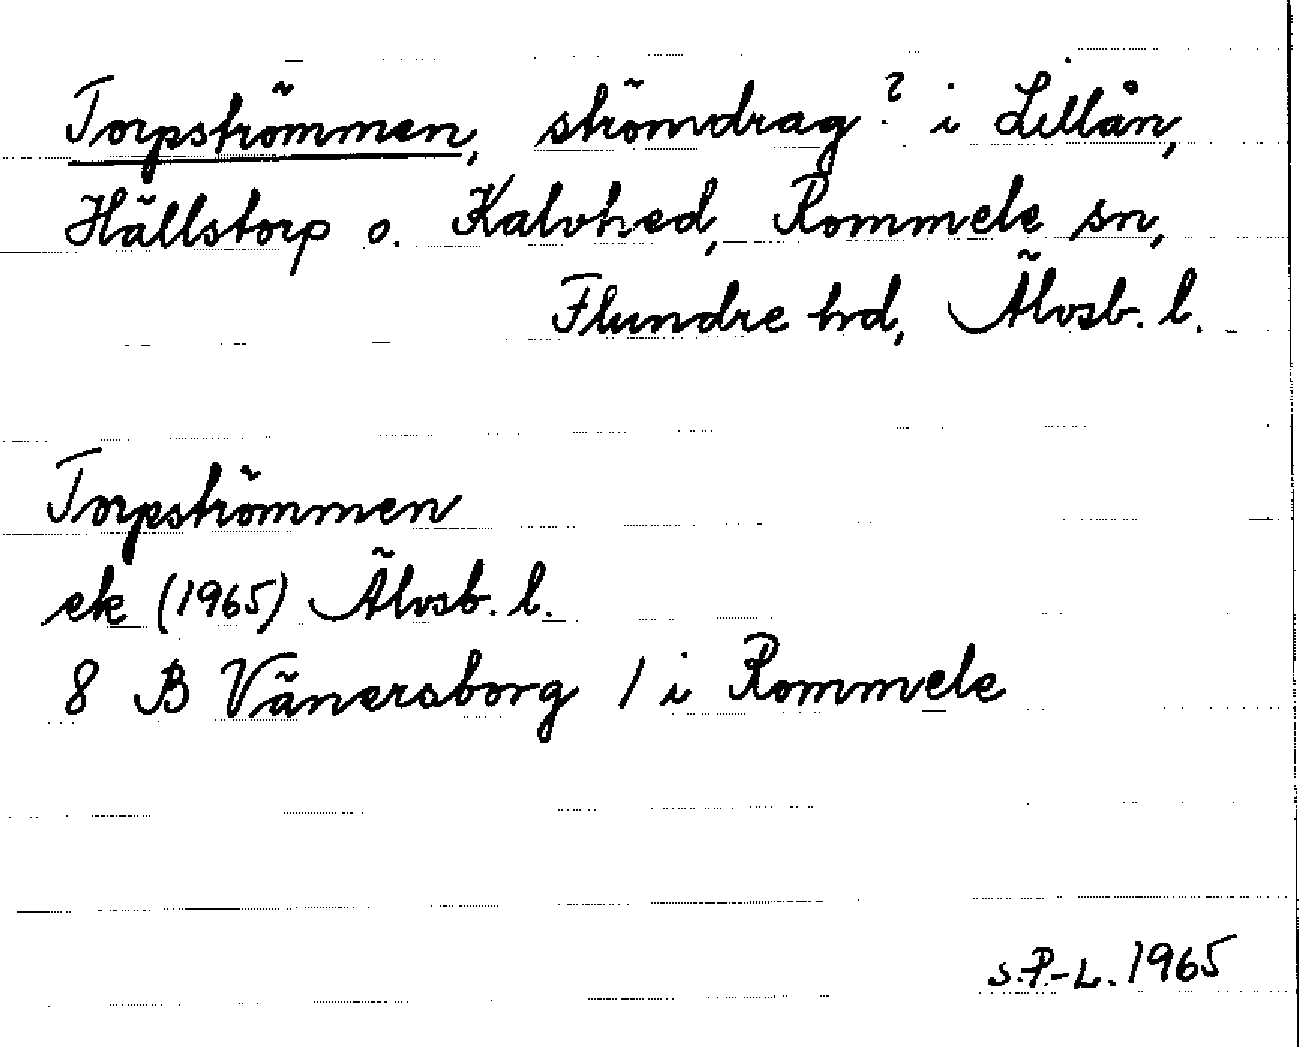 Torpströmmen, strömdrag? i Lillån,
Hällstorp o. Kalvhed, Rommele sn,
Flundre hd, Älvsb. l.
Torpströmmen
ek (1965) Älvsb. l.
8 B Vänersborg / i Rommele
S.P.-L. 1965